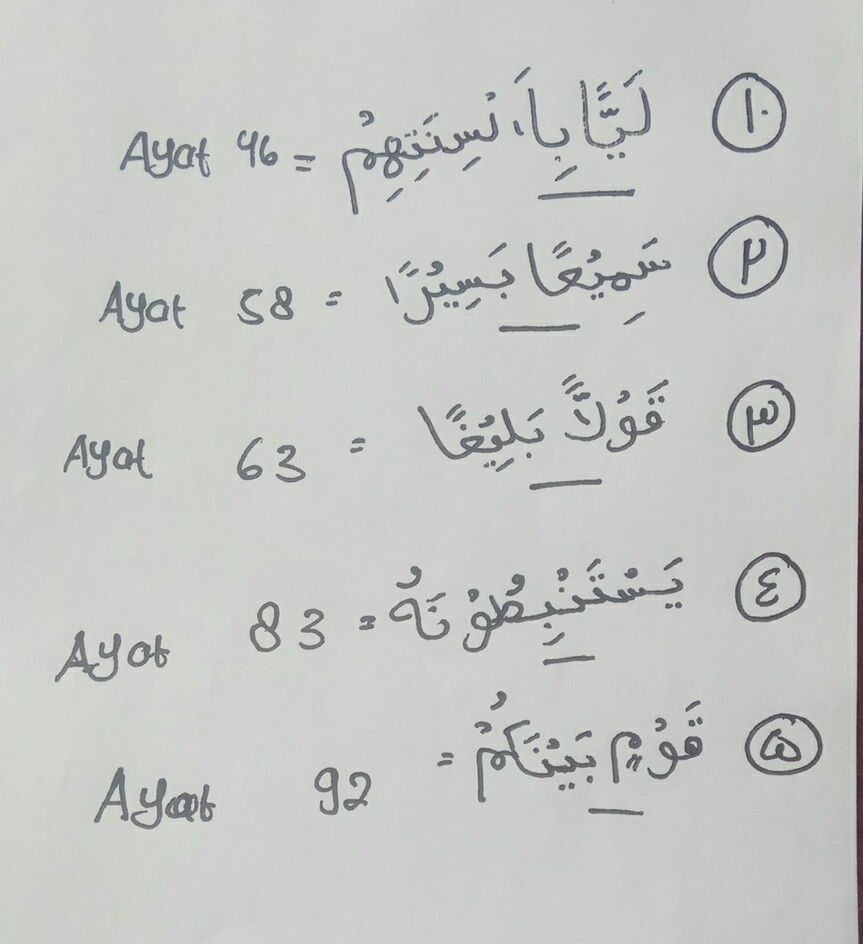 ١٠ لَيًّا بِاَ، لْسِنَتِهِمْ = Ayat 46
٢ سَمِيْعًا بَسِيْرًا = Ayat 58
٣ قَوْلاً بَلِيْغًا = Ayat 63
٤ يَسْتَنْبِطُوْنَهُ = Ayat 83
٥ قَوْمٍ بَيْنَكُمْ = Ayat 92